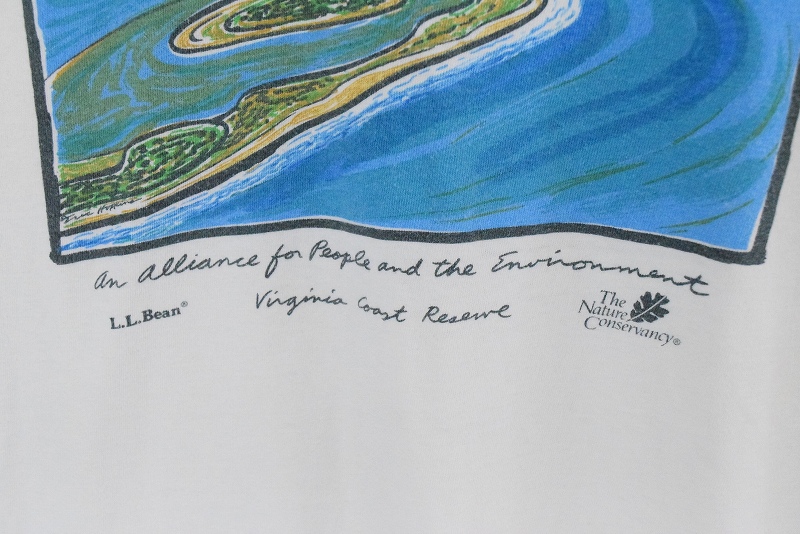 Eric Hopkins
An Alliance for People and the Environment
Virginia Coast Reserve
L.L.Bean®
The
Nature
Conservancy®